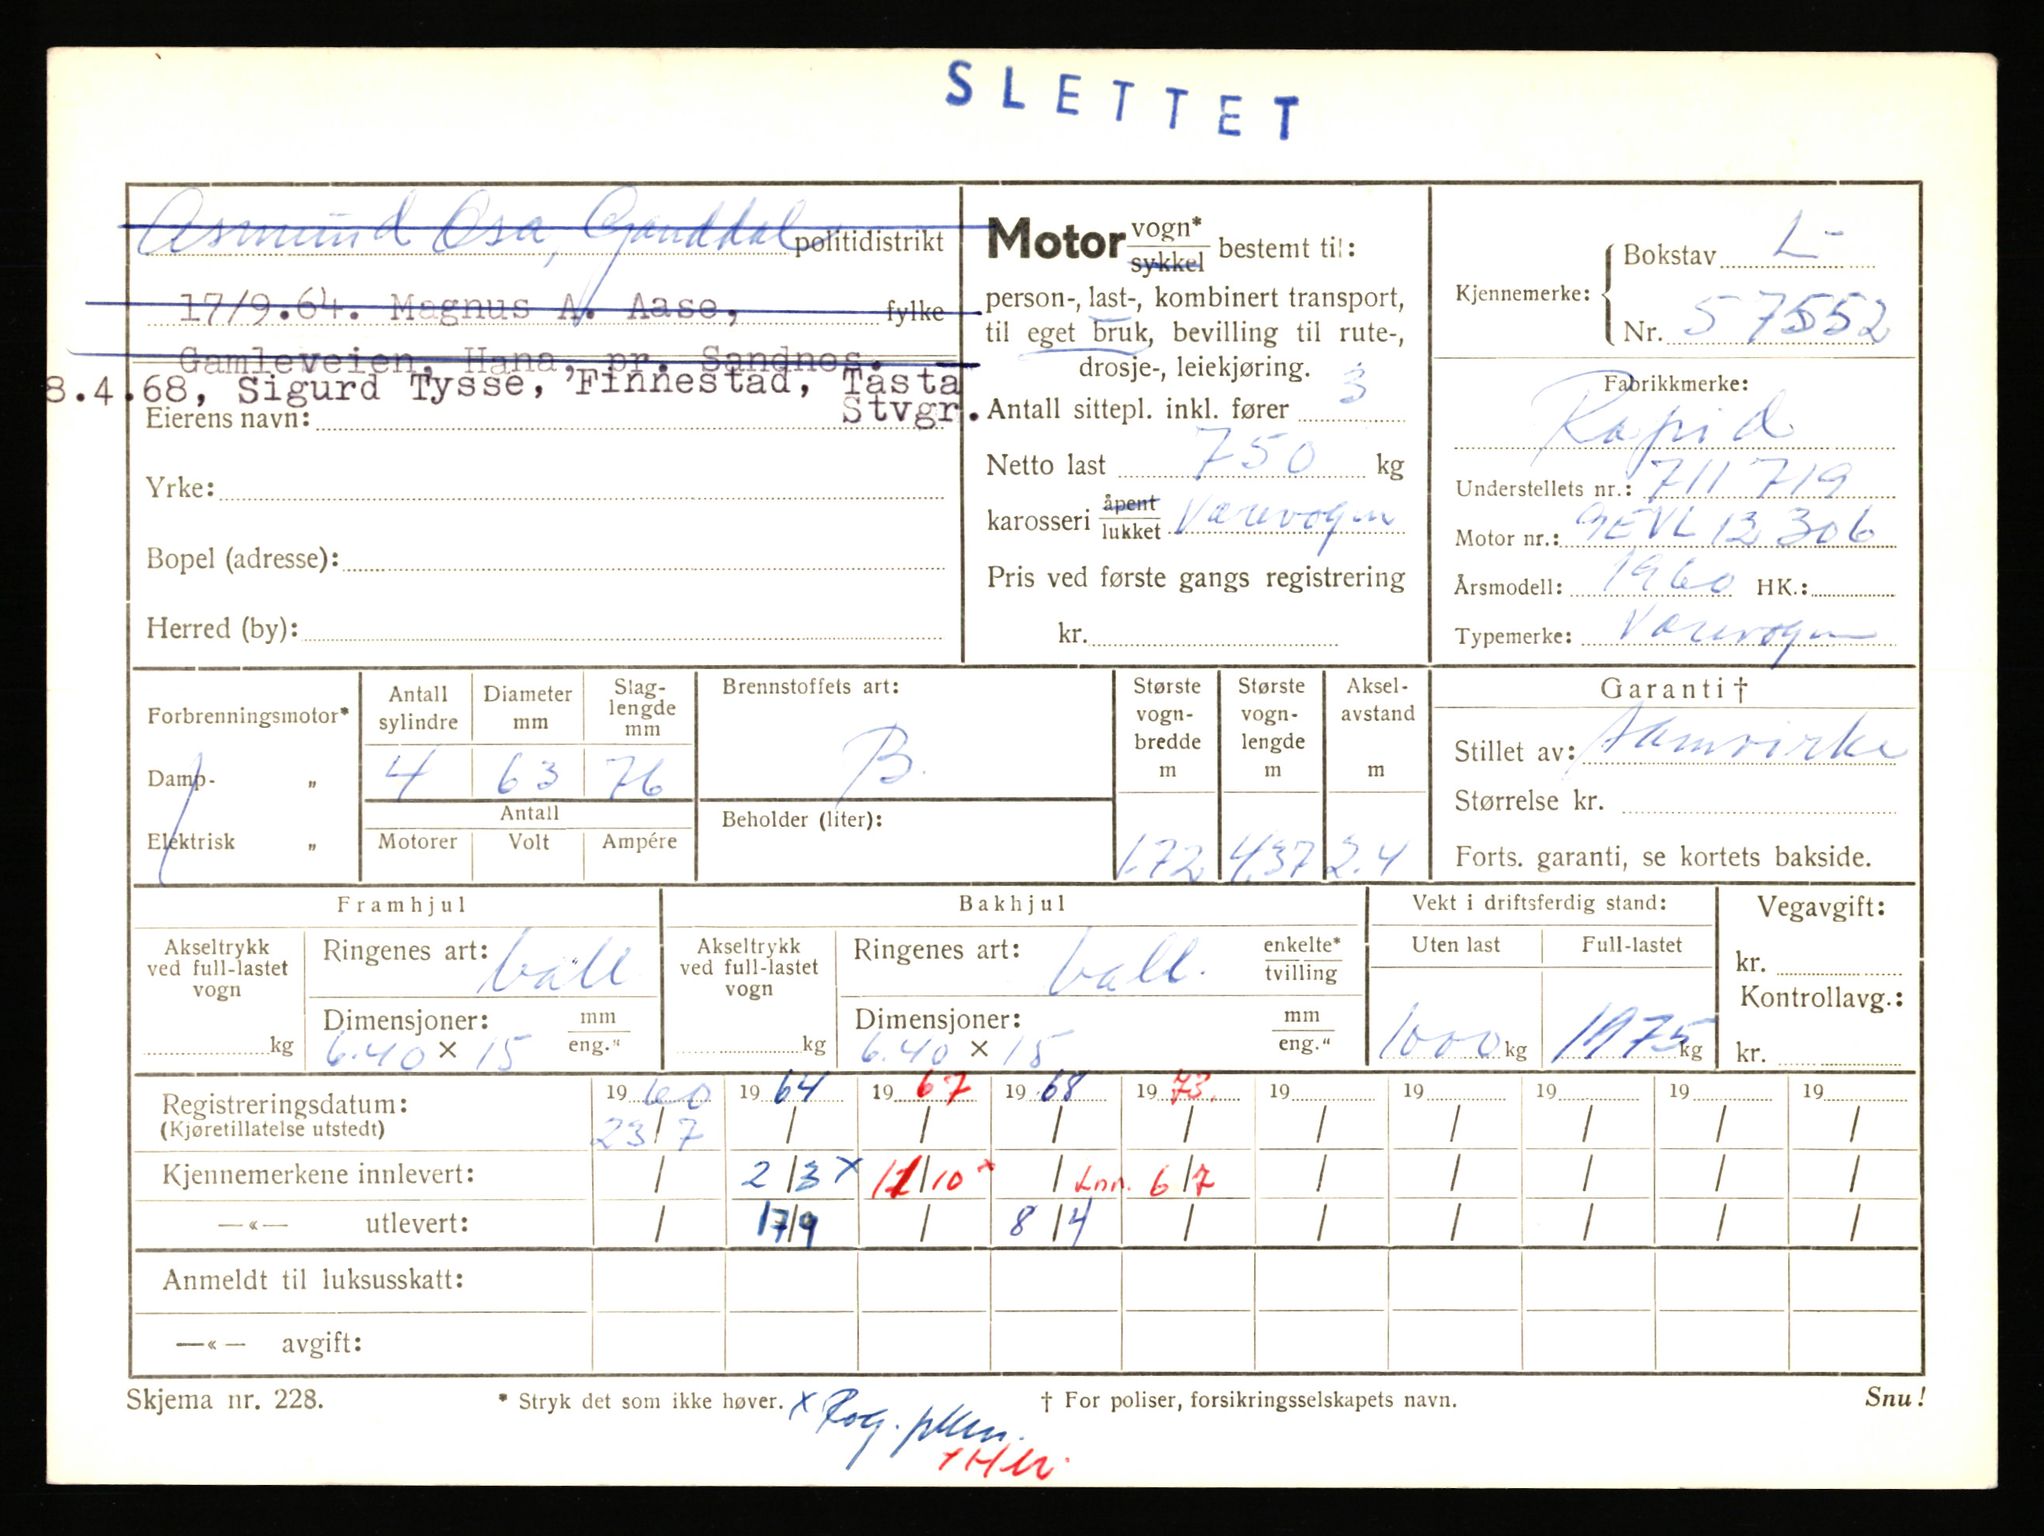 SLETTET
Asmund Osa, Ganddal politidistrikt
17/9.64. Magnus A. Aase, fylke
Gamleveien, Hana, pr. Sandnes.
8.4.68, Sigurd Tysse, Finnestad, Tasta
Stvgr.
Eierens navn:
Yrke:
Bopel (adresse):
Herred (by):
Motor vogn* sykkel bestemt til:
person-, last-, kombinert transport,
til eget bruk, bevilling til rute-,
drosje-, leiekjøring.
Antall sittepl. inkl. fører 3
Netto last 750 kg
karosseri åpent lukket Varevogn
Pris ved første gangs registrering
kr.
Kjennemerke: Bokstav L-
Nr. 57552
Fabrikkmerke:
Rapid
Understellets nr.: 711719
Motor nr.: 9EVL 13306
Årsmodell: 1960 HK.:
Typemerke: Varevogn
Forbrenningsmotor*
Damp- „
Elektrisk „
Antall sylindre
Diameter mm
Slag-lengde mm
4 63 76
Antall
Motorer Volt Ampére
Brennstoffets art:
B.
Beholder (liter):
Største vogn-bredde m
1.72
Største vogn-lengde m
4,37
Aksel-avstand m
2.4
Garanti †
Stillet av: Samvirke
Størrelse kr.
Forts. garanti, se kortets bakside.
Framhjul
Akseltrykk ved full-lastet vogn
kg
Ringenes art: ball
Dimensjoner: mm eng."
6.40 × 15
Bakhjul
Akseltrykk ved full-lastet vogn
kg
Ringenes art: ball. enkelte* tvilling
Dimensjoner: mm eng."
6.40 × 15
Vekt i driftsferdig stand:
Uten last Full-lastet
1000 kg 1975 kg
Vegavgift:
kr.
Kontrollavg.:
kr.
19 60 19 64 19 67 19 68 19 73. 19 19 19 19 19
Registreringsdatum: 23/7 / / / / / / / / /
(Kjøretillatelse utstedt)
Kjennemerkene innlevert: / 2/3 x 11/10 x / Inn. 6/7 / / / / /
—«— utlevert: / 17/9 / 8/4 / / / / / /
Anmeldt til luksusskatt:
—«— avgift:
Skjema nr. 228.
* Stryk det som ikke høver.
† For poliser, forsikringsselskapets navn.
Snu!
x Rog.